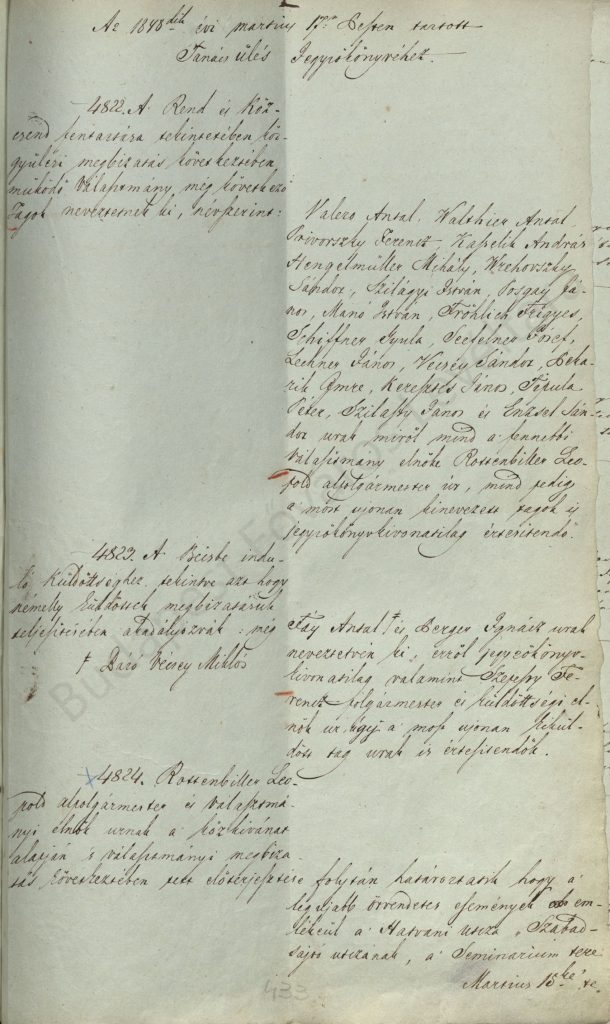 Az 1848dik évi martius 17én Pesten tartott
Tanács ülés Jegyzőkönyvéhez.
4822. A Rend és Köz-
csend fentartása tekintetében köz-
gyűlési megbizatás következtében
működő Választmány, még következő
Tagok neveztetnek ki, névszerint:
Valero Antal, Walthier Antal
Privorszky Ferencz, Kapelik András
Hengelmüller Mihály, Wrchovszky
Sándor, Szilágyi István, Posgay Já-
nos, Manó István, Fröhlich Frigyes,
Schiffner Gyula, Seefelner Jósef,
Lechner János, Vecséy Sándor, Peka-
rik Imre, Keresztes János,
Peter, János és Enzsel Sán-
dor urak miről mind a fennebbi
választmány elnöke Rottenbiller Leo-
pold alpolgármester úr, mind pedig
a most ujonan kinevezett tagok is
jegyzőkönyvkivonatilag értesitendő.
4823. A Bécsbe indu-
ló Küldöttséghez, tekintve azt hogy
némelly küldöttek megbizásuk
teljesitésében akadályozvák: még
† Báró Vécsey Miklós
Fáy Antal † és Berger Ignácz urak
neveztetvén ki, erről jegyzőköny-
kivonatilag valamint Szepessy Fe-
rencz polgármester és küldöttségi el-
nök ur, úgy a most ujonan kikül-
dött tag urak is értesitendők.
4824. Rottenbiller Leo-
pold alpolgármester és választmá-
nyi elnök urnak a közkivánat
alapján s választmányi megbiza-
tás következtében tett előterjesztése folytán határoztatik hogy a
legujabb örvendetes események em-
lékéül a Hatvani utcza „Szabad-
sajtó utczának, a Seminarium tere
Martius 15ke te-
433